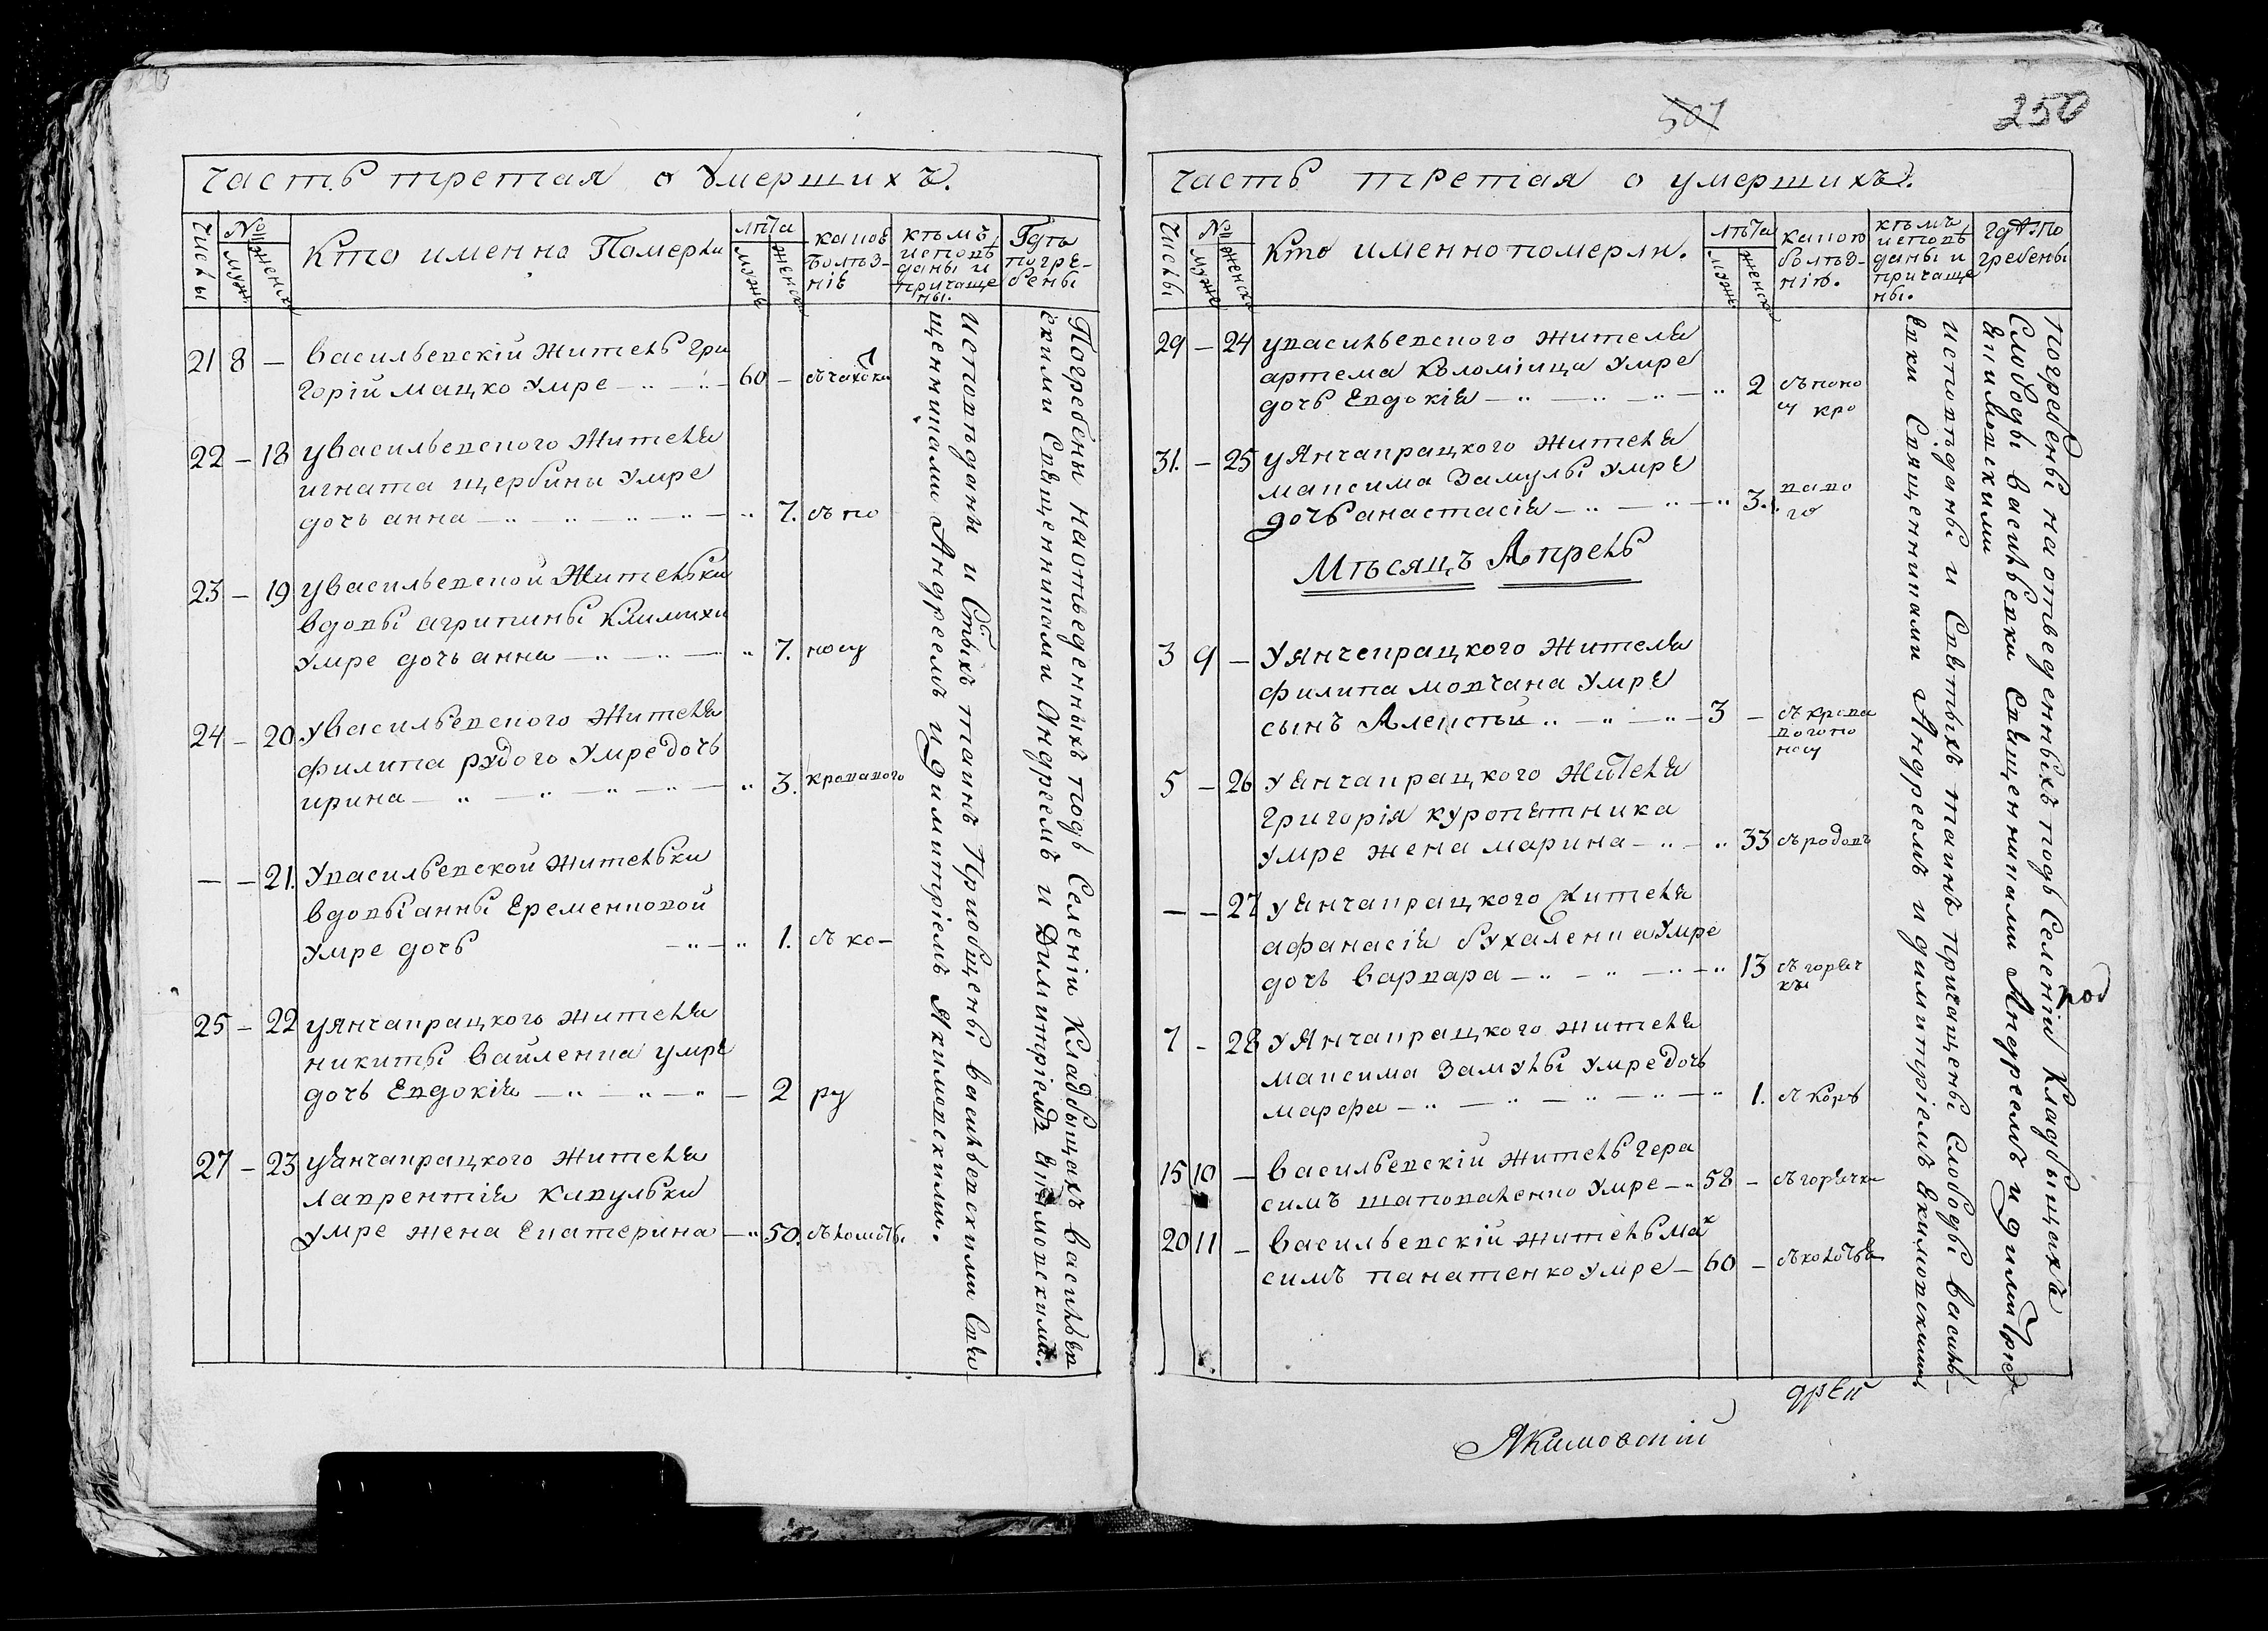 часть третая о Умершихъ.
Числы
№
мужс
женск
Кто именно Померли
лѣта
мужс
женск
какою
Болѣз-
ніе
кѣмъ
исповѣ
даны и
Причаще
ны.
Гдѣ
погре-
бены
21 8 — васильевскій Житель Гри
горій мацко Умре — 60 — съ чахотки
22 — 18 увасильевского Жителя
игната щербины Умре
дочь анна — 7. съ по
23 — 19 увасильевской Жительки
вдовы агрипины Климихи
умре дочь анна — 7. носу
24 — 20 увасильевского Жителя
филипа рудого Умре дочь
ирина — 3. кровавого
— — 21. Увасильевской Жительки
вдовы анны Еременковой
умре дочь — 1. съ ко-
25 — 22 уянчапрацкого жителя
никиты вайленка умре
дочь Евдокія — 2 ру
27 — 23 уянчапрацкого жителя
лаврентія
умре жена Екатерина — 50.
Исповѣданы и Стыхъ таинъ Приобщены васильевскими Свя
щенниками Андреемъ и димитріемъ Якимовскими.
Погребены на отведенныхъ подъ Селеніи Кладбыщахъ васильев
скими Священниками Андреемъ и Димитріемъ Якимовскими.
501
250
часть третая о умершихъ.
Числы
№
мужс
женск
Кто именно померли.
лѣта
мужс
женск
какою
болѣз-
нію.
кѣмъ
исповѣ
даны и
причаще
ны.
гдѣ по
гребены
29 — 24 увасильевского жителя
артема коломійца Умре
дочь Евдокія — 2 съ поно
су кро
31. — 25 уянчапрацкого жителя
максима Замулы Умре
дочь анастасія — 3. ваво
го
Мѣсяцъ Апрель
3 9 — Уянчепрацкого жителя
филипа мовчана Умре
сынъ Алексѣй — 3 — съ крова
вого по
носу
5 — 26 уянчапрацкого Жителя
Григорія куропятника
умре жена марина — 33 съ родовъ
— — 27 уянчапрацкого Жителя
афанасія бухаленка Умре
дочь варвара — 13 съ горяч
кы
7 — 28 уянчапрацкого жителя
максима Замулы Умре дочь
марфа — 1. съ коръ
15 10 — васильевскій житель гера
симъ шаповаленко Умре — 58 — съ горячки
20 11 — васильевскій житель мак
симъ панатенко умре — 60 — съ колотья
исповѣданы и Святыхъ таинъ причащены Слободы василь-
евки Священниками Андреемъ и димитріемъ Якимовскими
погребены на отведенныхъ подъ Селеніи Кладбыщахъ
Слободы васильевки Священниками Андреемъ и димитріем
Якимовскими
под
дрей
Якимовскій